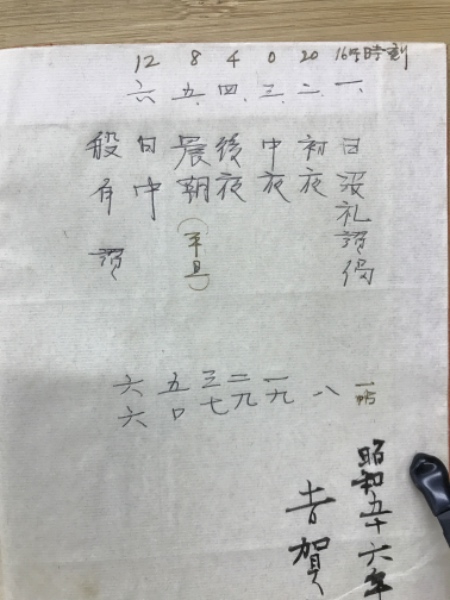 12 8 4 0 20 16時 時刻
一、日没礼讃偈
二、初夜
三、中夜
四、後夜
五、晨朝(平旦)
六、日中
般舟讃
一頁
八
一九
二九
三七
五〇
六六
昭和五十六年
吉賀